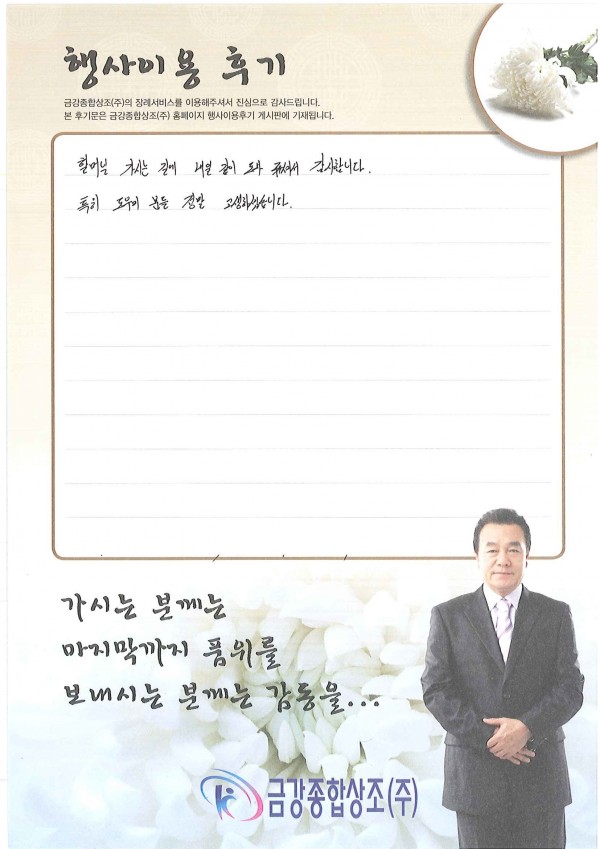 행사이용 후기
금강종합상조(주)의 장례서비스를 이용해주셔서 진심으로 감사드립니다.
본 후기문은 금강종합상조(주) 홈페이지 행사이용후기 게시판에 기재됩니다.
할머님 가시는 길에 내일 같이 도와 주셔서 감사합니다.
특히 도우미 분들 정말 고생하셨습니다.
가시는 분께는
마지막까지 품위를
보내시는 분께는 감동을...
금강종합상조(주)